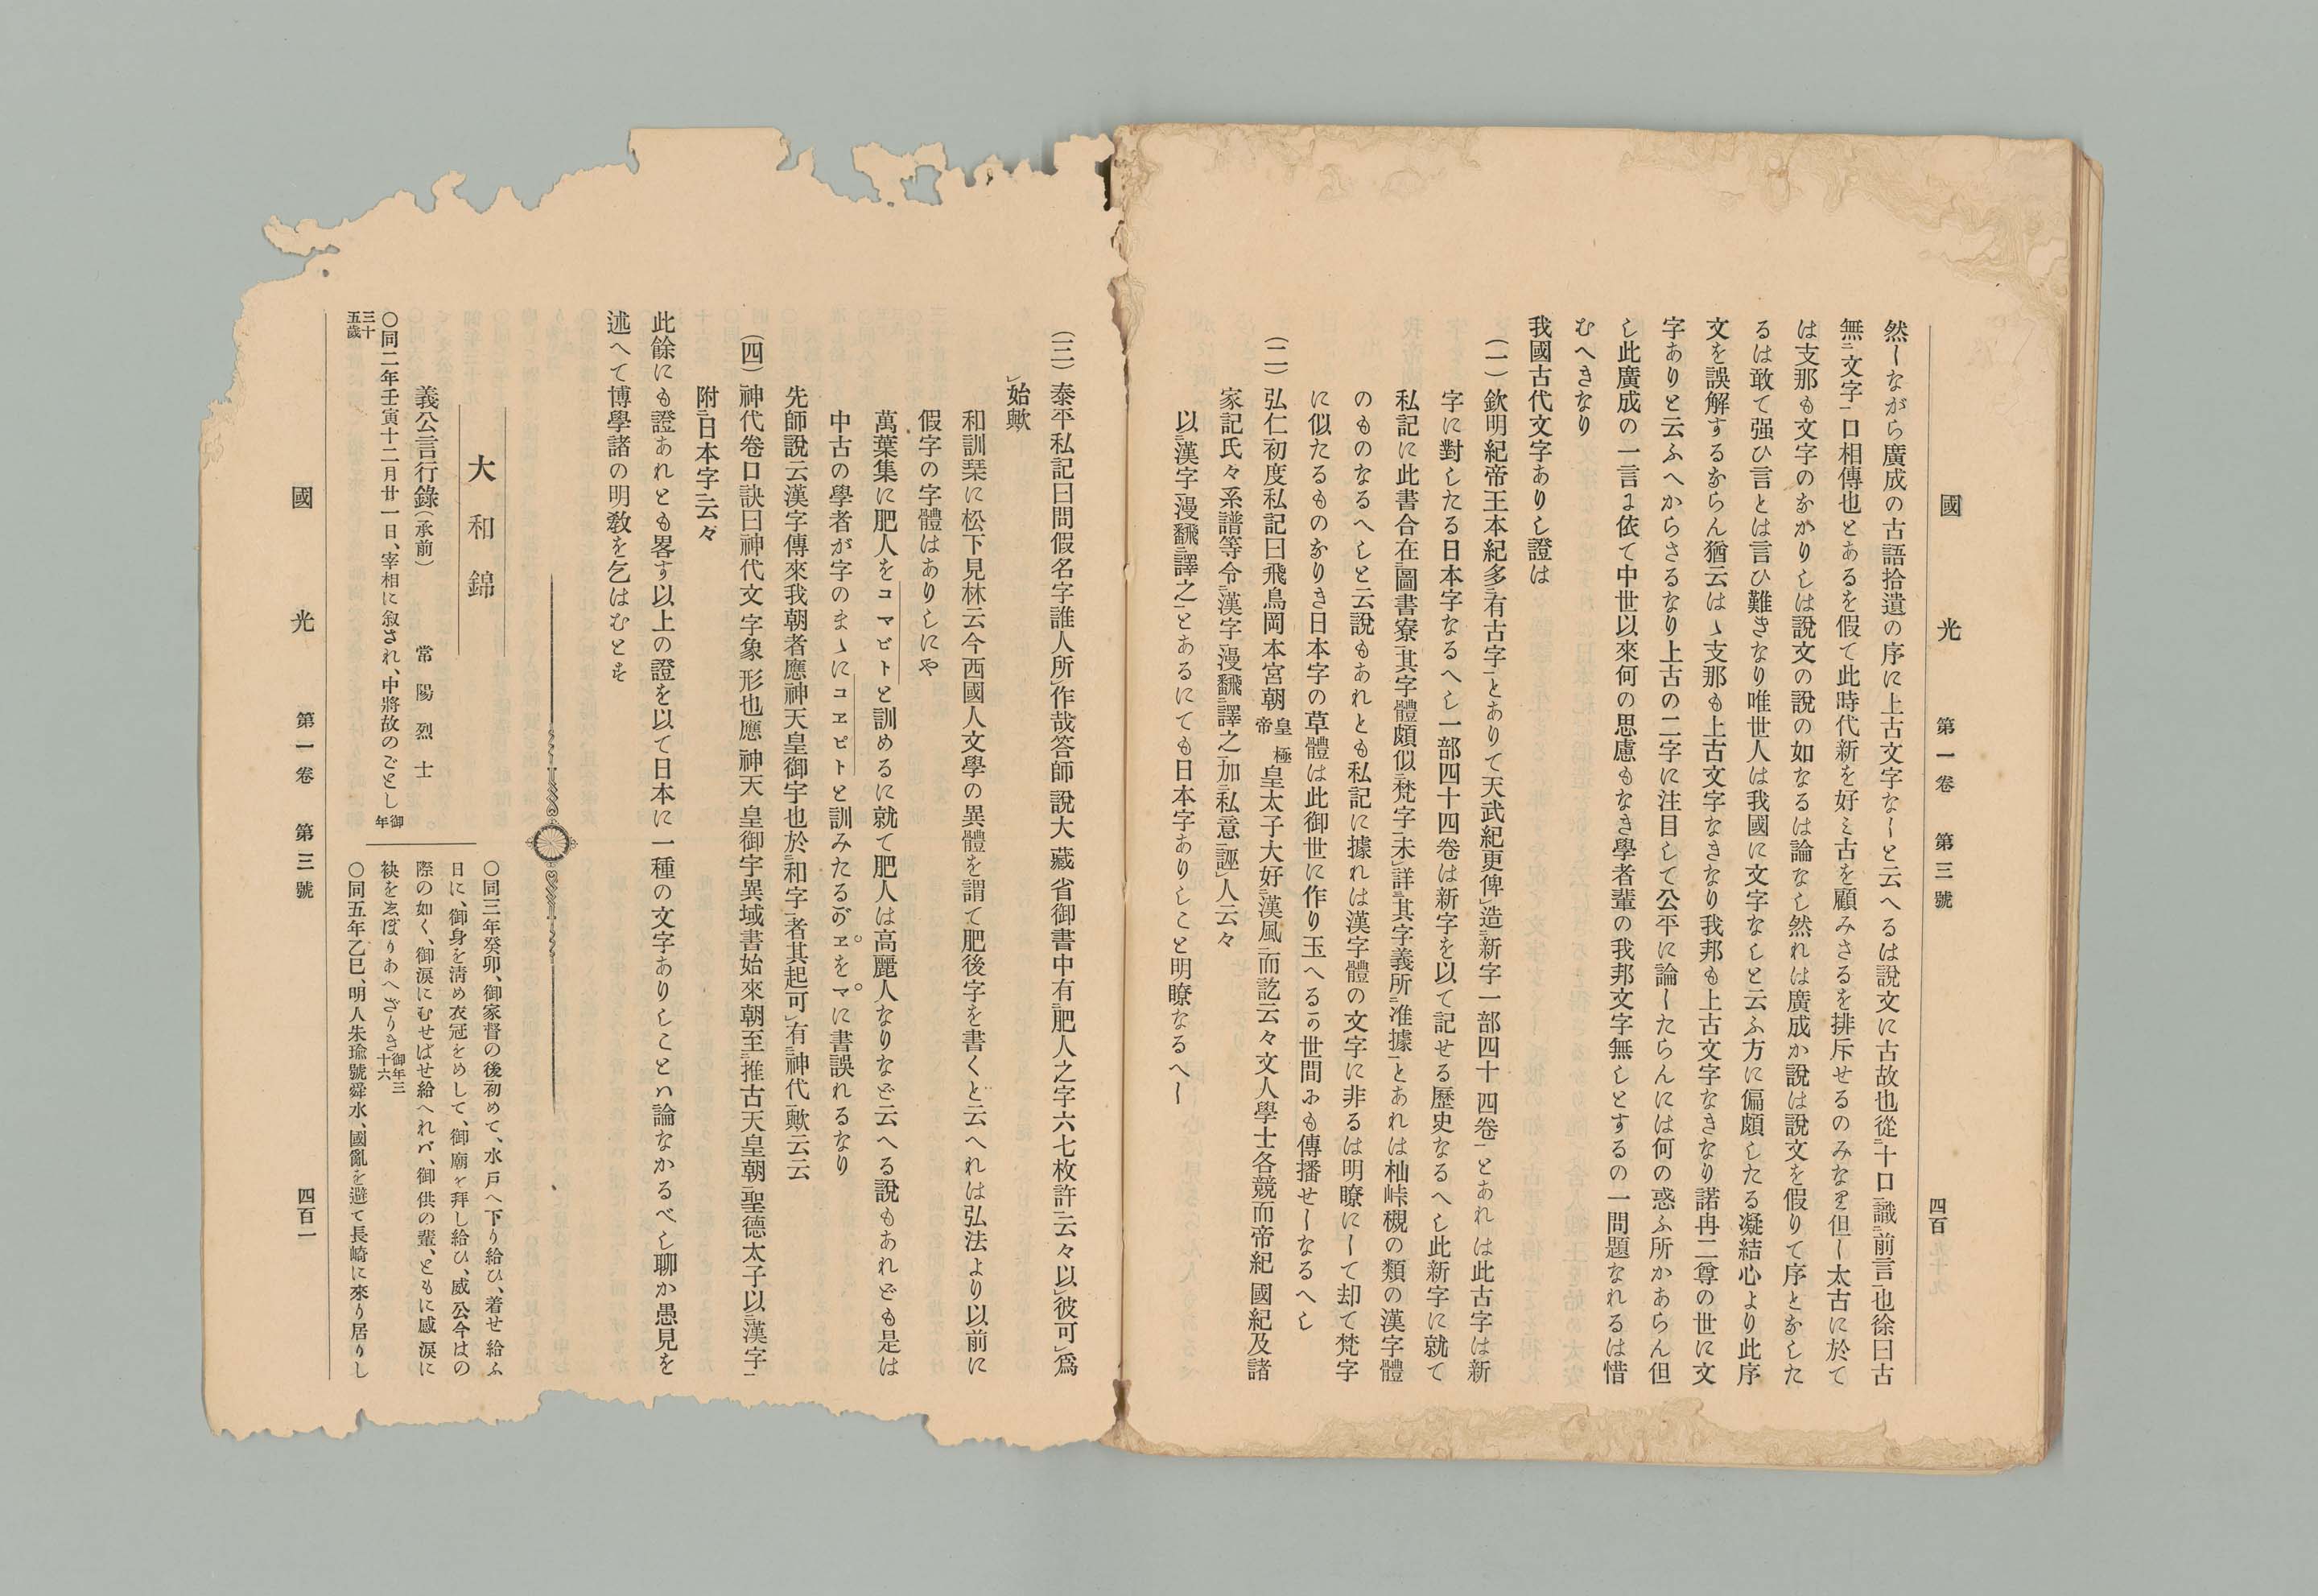 國光 第一卷 第三號 四百
然しながら廣成の古語拾遺の序に上古文字なしと云へるは說文に古故也從﹅十口﹅識﹅前言﹅也徐曰古
無﹅文字﹅口相傳也とあるを假て此時代新を好ミ古を顧みさるを排斥せるのみなり但し太古に於て
は支那も文字のなかりしは說文の說の如なるは論なし然れは廣成か說は說文を假りて序となした
るは敢て强ひ言とは言ひ難きなり唯世人は我國に文字なしと云ふ方に偏頗したる凝結心より此序
文を誤解するならん猶云はゝ支那も上古文字なきなり我邦も上古文字なきなり諾冉二尊の世に文
字ありと云ふへからさるなり上古の二字に注目して公平に論したらんには何の惑ふ所かあらん但
し此廣成の一言に依て中世以來何の思慮もなき學者輩の我邦文字無しとするの一問題なれるは惜
むへきなり
我國古代文字ありし證は
(一)欽明紀帝王本紀多﹅有古字﹅とありて天武紀更俾﹅造﹅新字一部四十四卷﹅とあれは此古字は新
字に對したる日本字なるへし一部四十四卷は新字を以て記せる歷史なるへし此新字に就て
私記に此書合在﹅圖書寮﹅其字體頗似﹅梵字﹅未﹅詳﹅其字義所﹅准據﹅とあれは杣峠槻の類の漢字體
のものなるへしと云說もあれとも私記に據れは漢字體の文字に非るは明瞭にして却て梵字
に似たるものなりき日本字の草體は此御世に作り玉へるの世間にも傳播せしなるへし
(二)弘仁初度私記曰飛鳥岡本宮朝皇極皇帝皇太子大好﹅漢風﹅而訖云々文人學士各競而帝紀國紀及諸
家記氏々系譜等令﹅漢字﹅漫飜﹅譯之﹅加﹅私意﹅誣﹅人云々
以﹅漢字﹅漫飜﹅譯之﹅とあるにても日本字ありしこと明瞭なるへし
(三)泰平私記曰問假名字誰人所﹅作哉答師說大藏省御書中有﹅肥人之字六七枚許﹅云々以﹅彼可﹅爲
﹅始歟
和訓栞に松下見林云今西國人文學の異體を謂て肥後字を書くと云へれは弘法より以前に
假字の字體はありしにや
萬葉集に肥人をコマビトと訓めるに就て肥人は高麗人なりなど云へる說もあれども是は
中古の學者が字のまゝにコヱビトと訓みたるがヱをマに書誤れるなり
先師說云漢字傳來我朝者應神天皇御宇也於﹅和字﹅者其起可﹅有﹅神代﹅歟云云
(四)神代卷口訣曰神代文字象形也應神天皇御宇異域書始來朝至﹅推古天皇朝﹅聖德太子以﹅漢字﹅
附﹅日本字﹅云々
此餘にも證あれとも畧す以上の證を以て日本に一種の文字ありしことハ論なかるべし聊か愚見を
述へて博學諸の明敎を乞はむとを
大和錦
義公言行錄(承前) 常陽烈士
○同二年壬寅十二月廿一日、宰相に叙され、中將故のごとし御年
三十五歲
○同三年癸卯、御家督の後初めて、水戸へ下り給ひ、着せ給ふ
日に、御身を淸め衣冠をめして、御廟を拜し給ひ、威公今はの
際の如く、御淚にむせばせ給へれバ、御供の輩、ともに感淚に
袂をゑぼりあへざりき御年三十六
○同五年乙巳、明人朱瑜號舜水、國亂を避て長崎に來り居りし
國光 第一卷 第三號 四百一